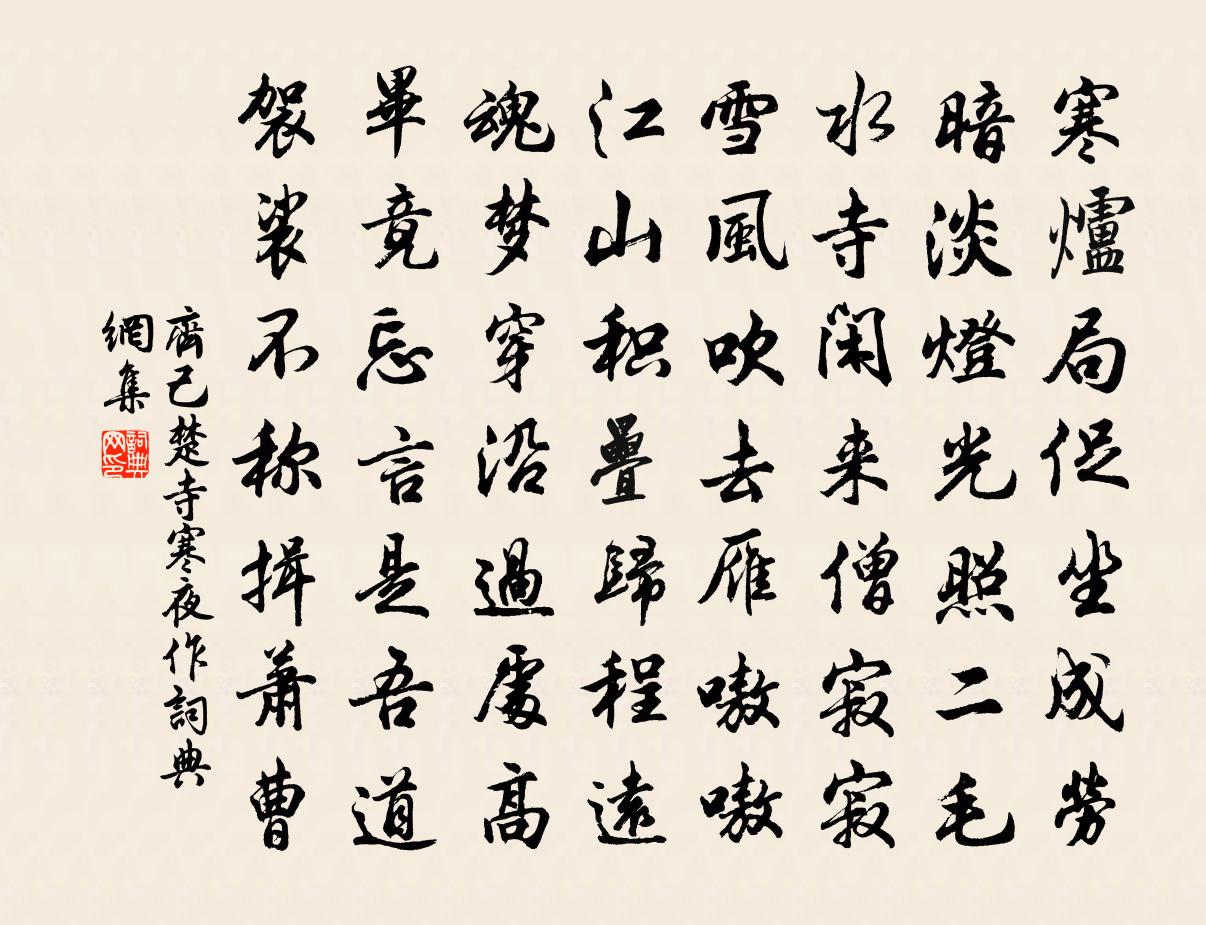 寒爐局促坐成勞
暗淡燈光照二毛
水寺閑来僧寂寂
雪風吹去雁嗷嗷
江山积疊歸程遠
魂梦穿沿過處高
畢竟忘言是吾道
袈裟不称揖蕭曹
齊己楚寺寒夜作詞典
網集
詞典网印